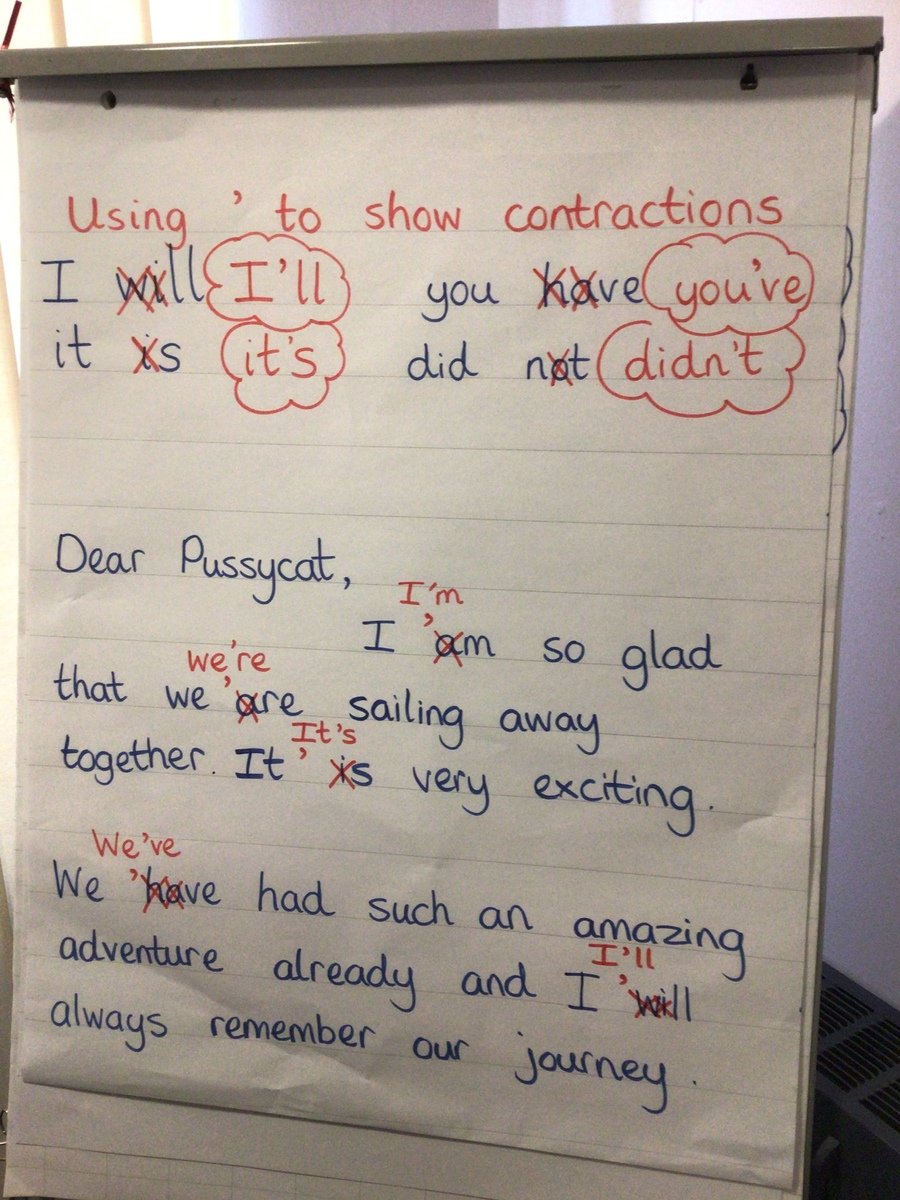 Using ' to show contractions
I will I'll you have you've
it is it's did not didn't
Dear Pussycat,
I'm
I 'am so glad
we're
that we 'are sailing away
It's
together. It 'is very exciting.
We've
We 'have had such an amazing
I'll
adventure already and I 'will
always remember our journey.